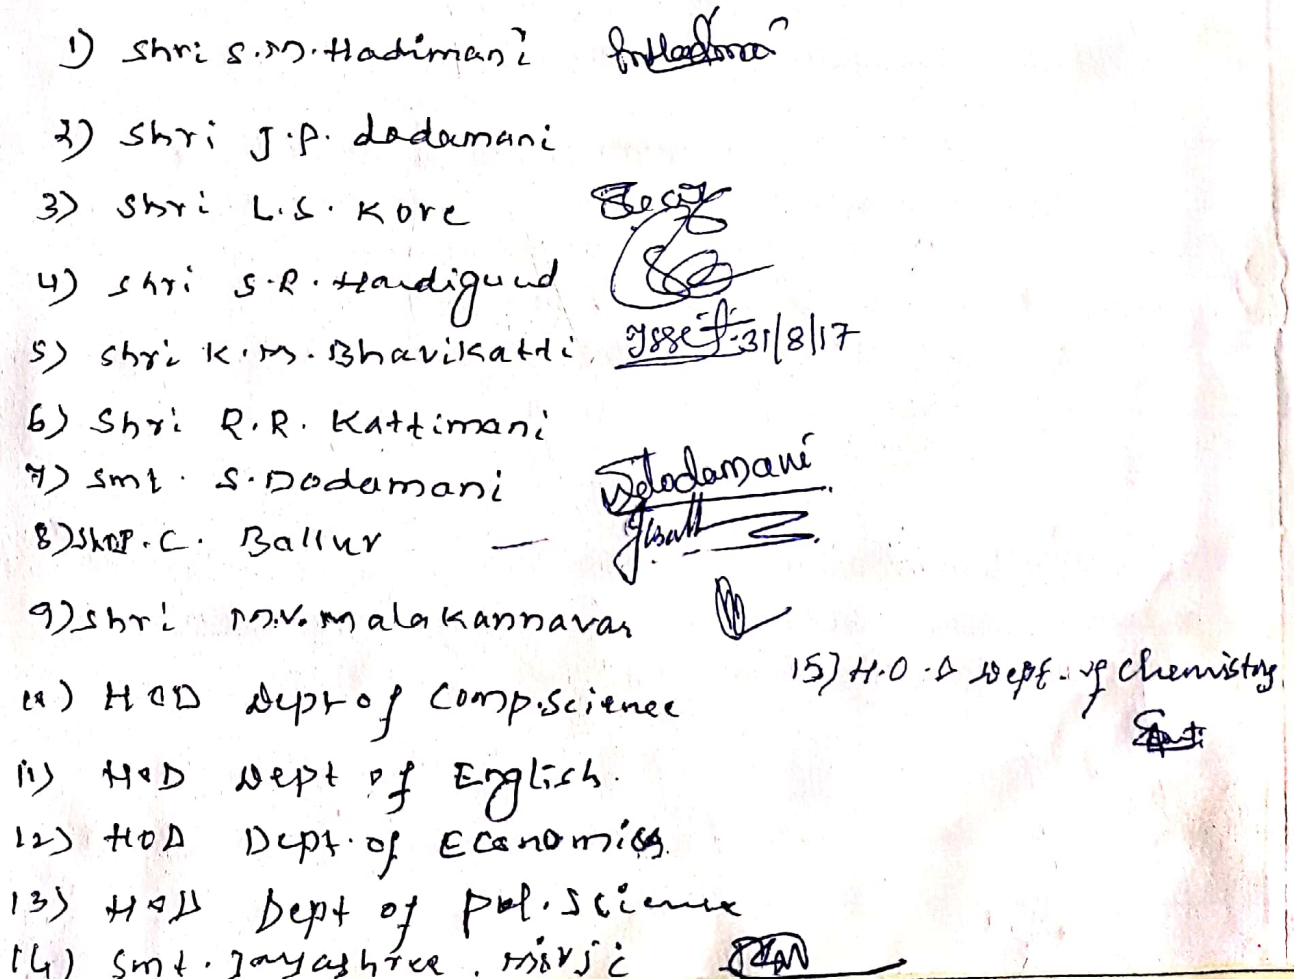 1) Shri S.M. Hadimani
2) Shri J.P. dodamani
3) Shri L.S. Kore
4) Shri S.R. Handigund
5) Shri K.M. Bhavikatti 31/8/17
6) Shri R.R. Kattimani
7) Smt. S. Dodamani Dodamani
8) C. Ballur —
9) Shri M.V. Malakannavar
10) HOD Dept of Comp. Science
15) H.O.D Dept. of Chemistry
11) HOD Dept of English.
12) HOD Dept. of Economics.
13) HOD Dept of pol. Science
14) Smt. Jayashree. Mirji